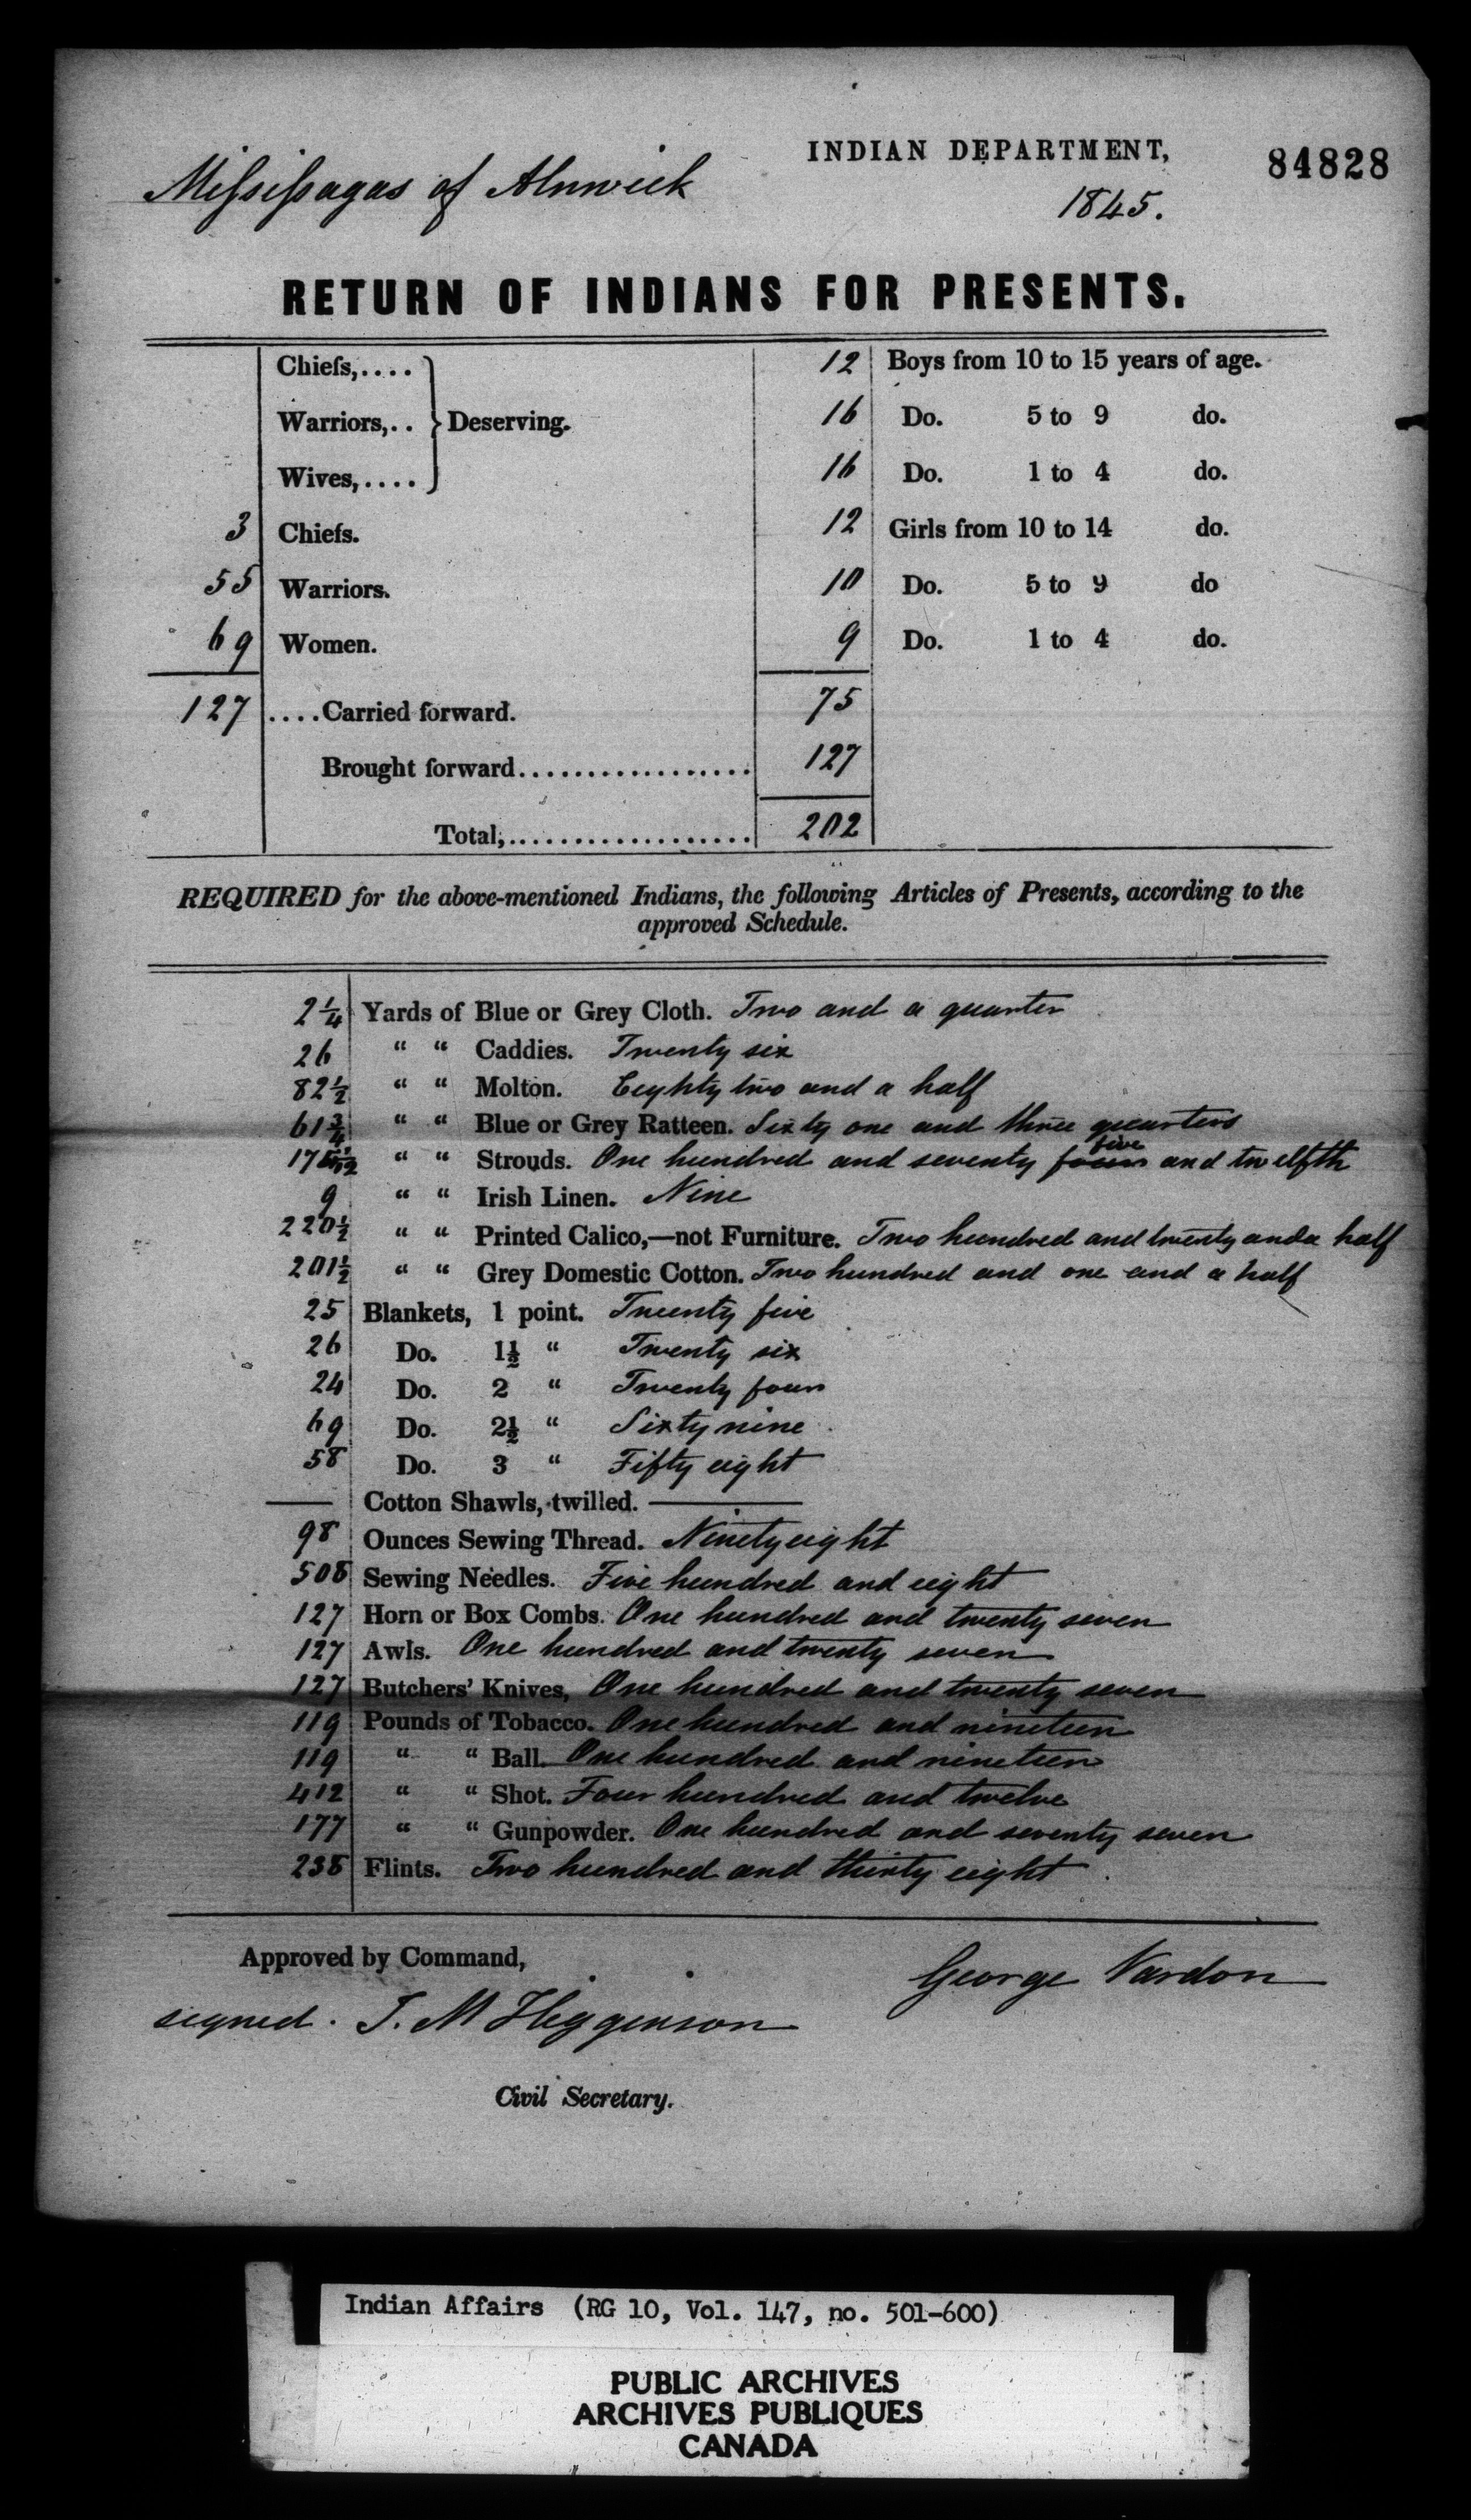 INDIAN DEPARTMENT,
84828
Missisagas of Alnwick
1845.
RETURN OF INDIANS FOR PRESENTS.
Chiefs,....
Warriors,.. } Deserving.
Wives,....
3 Chiefs.
55 Warriors.
69 Women.
127 ....Carried forward.
12 Boys from 10 to 15 years of age.
16 Do. 5 to 9 do.
16 Do. 1 to 4 do.
12 Girls from 10 to 14 do.
10 Do. 5 to 9 do
9 Do. 1 to 4 do.
75
Brought forward.................. 127
Total,................... 202
REQUIRED for the above-mentioned Indians, the following Articles of Presents, according to the
approved Schedule.
2¼ Yards of Blue or Grey Cloth. Two and a quarter
26 “ “ Caddies. Twenty six
82½ “ “ Molton. Eeighty two and a half
61¾ “ “ Blue or Grey Ratteen. Sixty one and three quarters
“ “ Strouds. One hundred and seventy four five and twelfth
9 “ “ Irish Linen. Nine
220½ “ “ Printed Calico,—not Furniture. Two hundred and twenty and a half
201½ “ “ Grey Domestic Cotton. Two hundred and one and a half
25 Blankets, 1 point. Twenty five
26 Do. 1½ “ Twenty six
24 Do. 2 “ Twenty four
69 Do. 2½ “ Sixty nine
58 Do. 3 “ Fifty eight
— Cotton Shawls, twilled. —
98 Ounces Sewing Thread. Ninety eight
508 Sewing Needles. Five hundred and eight
127 Horn or Box Combs. One hundred and twenty seven
127 Awls. One hundred and twenty seven
127 Butchers' Knives, One hundred and twenty seven
119 Pounds of Tobacco. One hundred and nineteen
119 “ “ Ball. One hundred and nineteen
412 “ “ Shot. Four hundred and twelve
177 “ “ Gunpowder. One hundred and seventy seven
238 Flints. Two hundred and thirty eight
Approved by Command,
George Vardon
signed. J. M Higginson
Civil Secretary.
Indian Affairs (RG 10, Vol. 147, no. 501-600)
PUBLIC ARCHIVES
ARCHIVES PUBLIQUES
CANADA